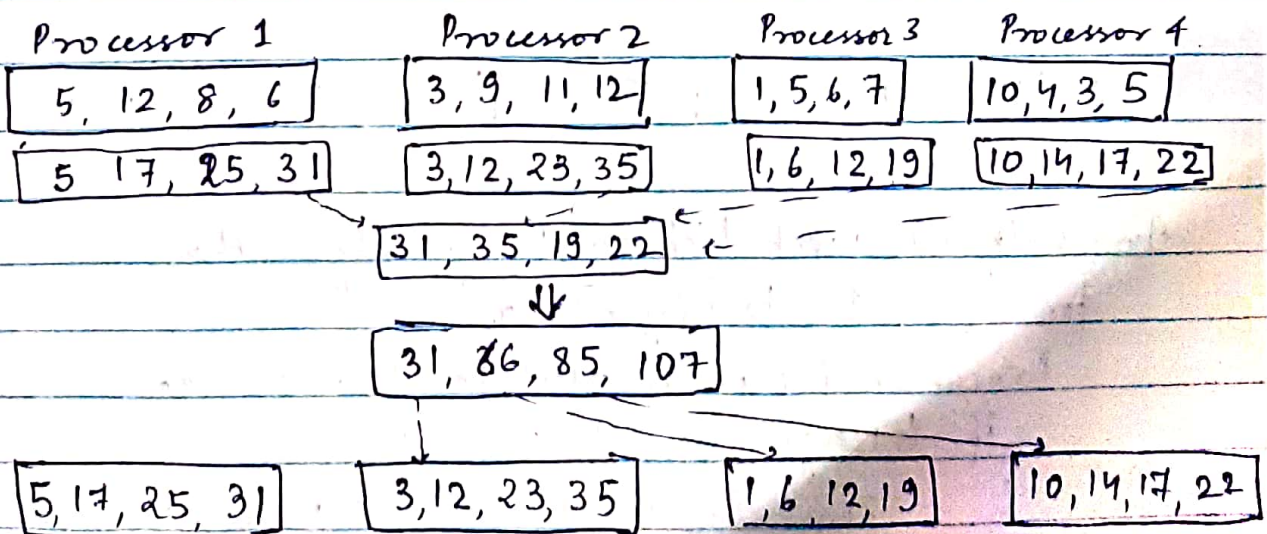 Processor 1 Processor 2 Processor 3 Processor 4
5, 12, 8, 6 3, 9, 11, 12 1, 5, 6, 7 10, 4, 3, 5
5 17, 25, 31 3, 12, 23, 35 1, 6, 12, 19 10, 14, 17, 22
31, 35, 19, 22
31, 66, 85, 107
5, 17, 25, 31 3, 12, 23, 35 1, 6, 12, 19 10, 14, 17, 22